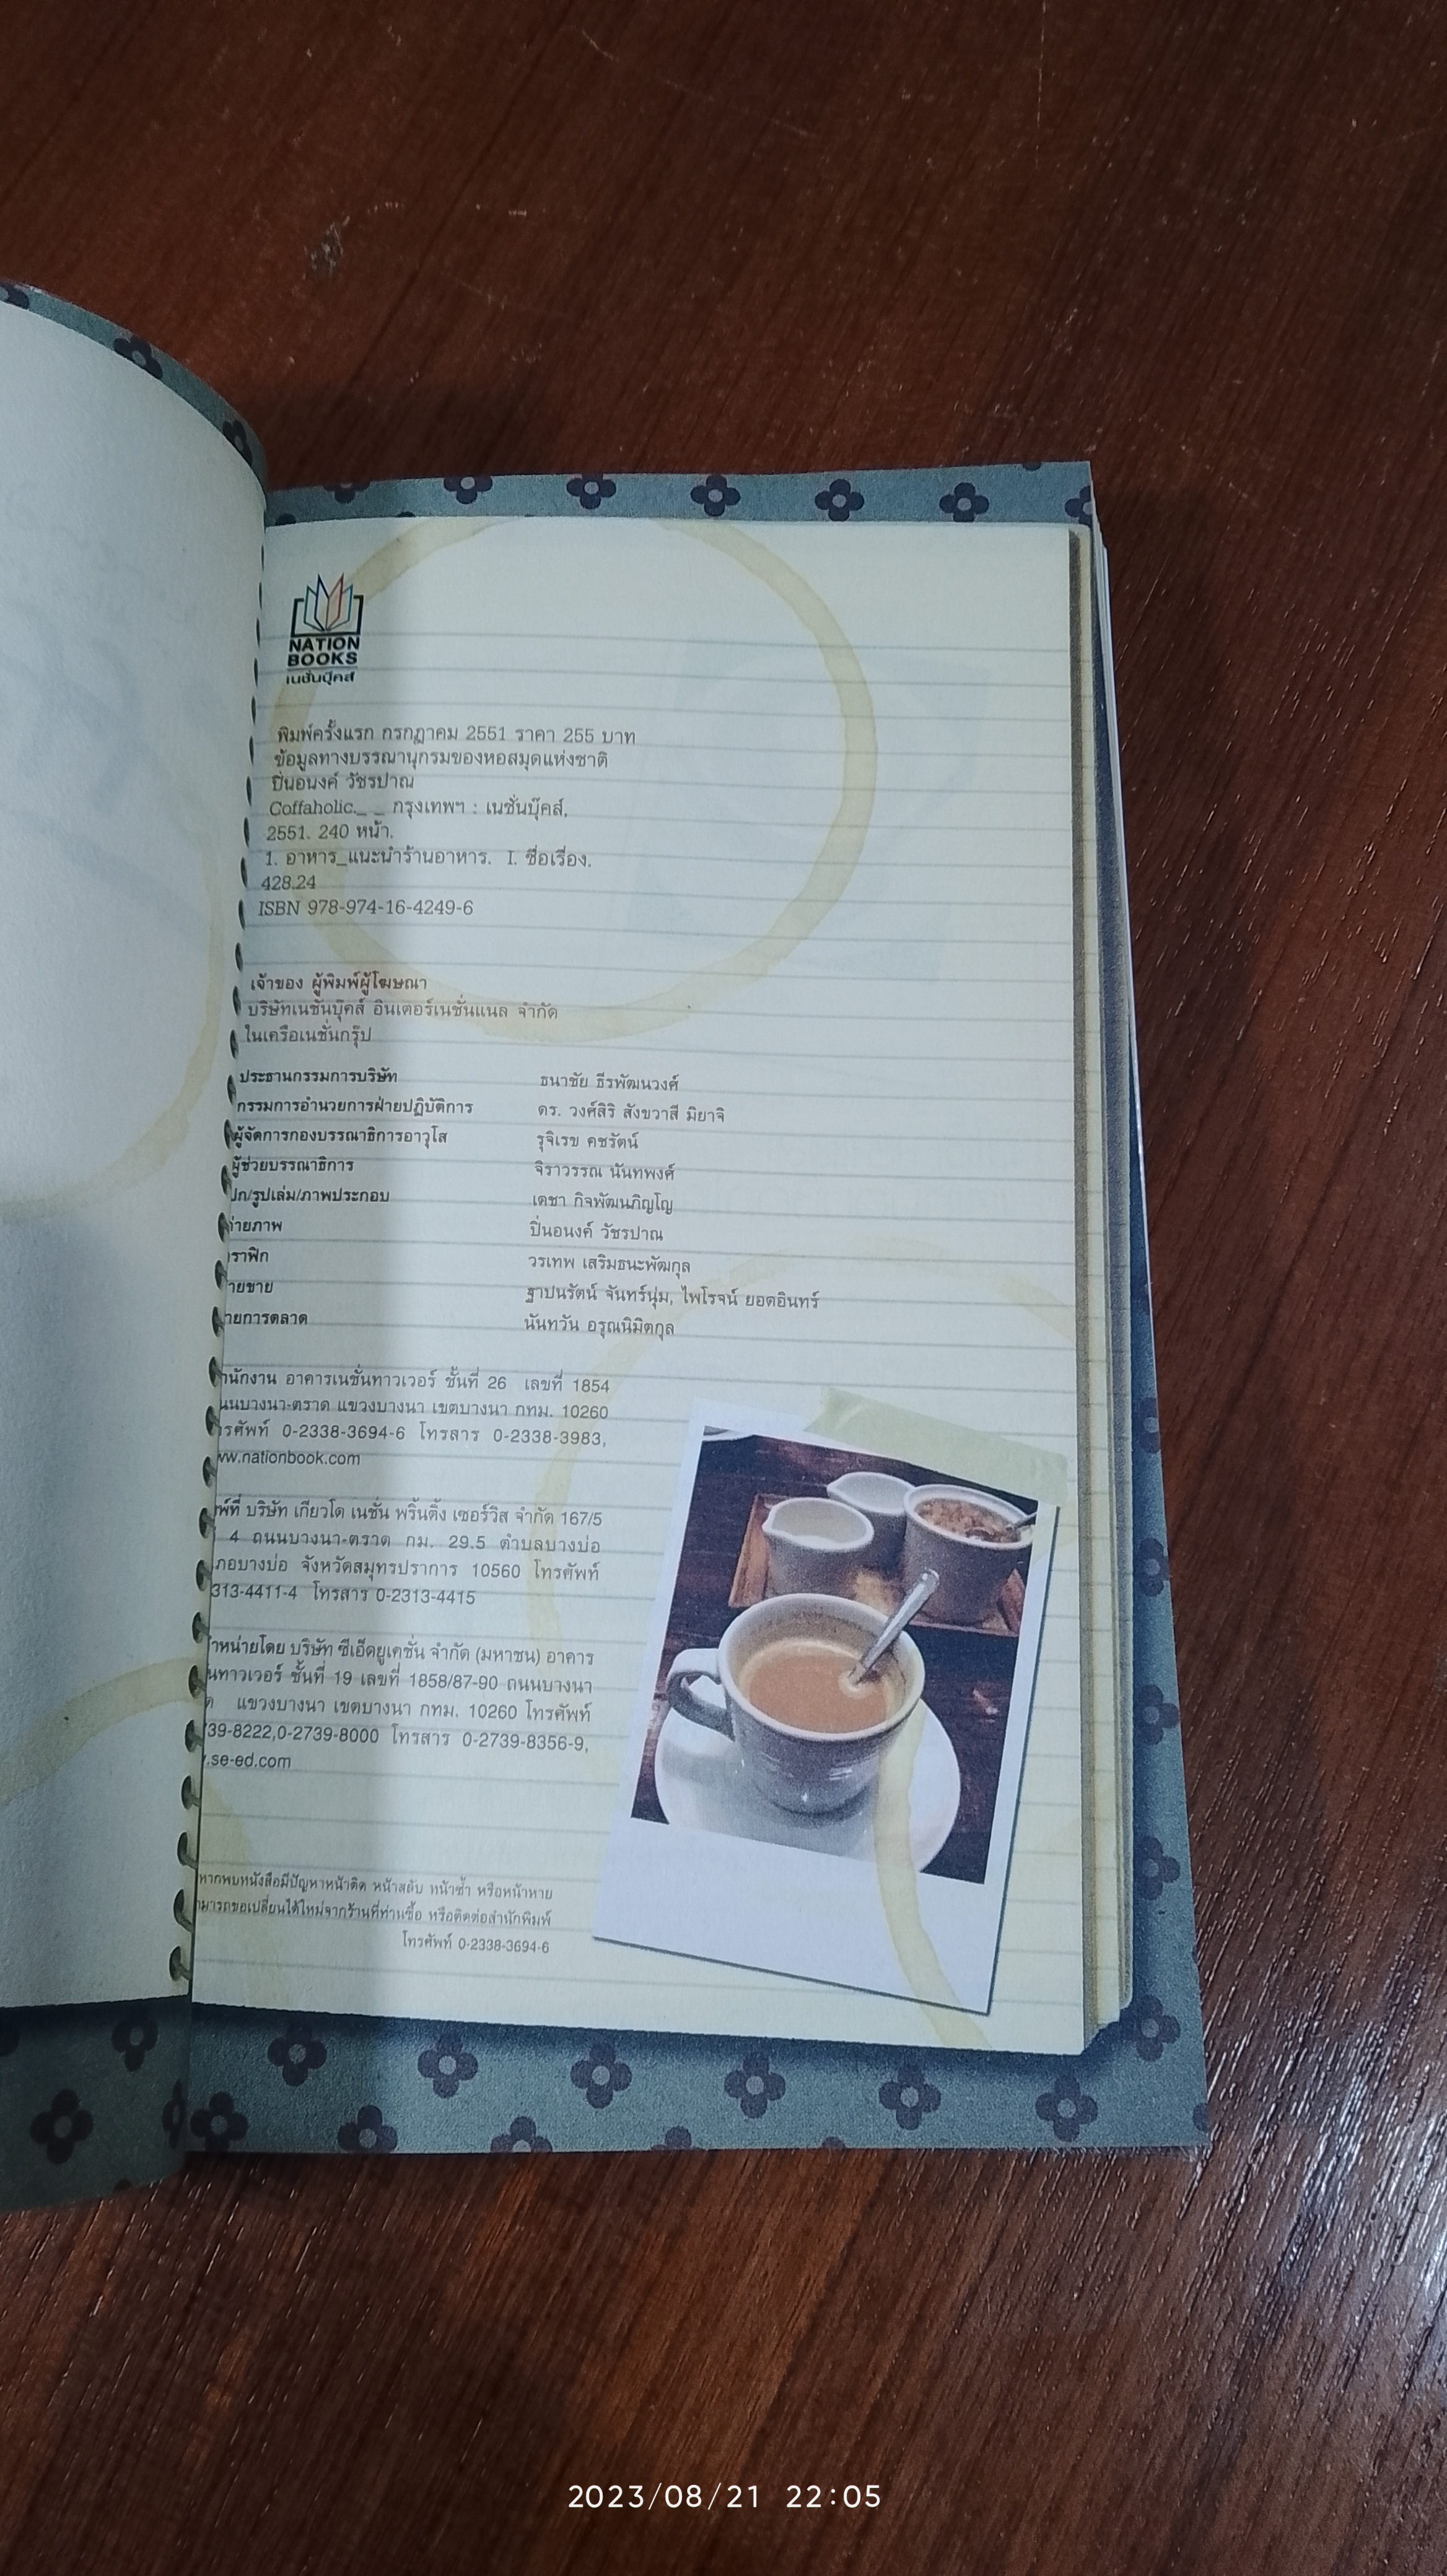 NATION
BOOKS
เนชั่นบุ๊คส์
พิมพ์ครั้งแรก กรกฎาคม 2551 ราคา 255 บาท
ข้อมูลทางบรรณานุกรมของหอสมุดแห่งชาติ
ปิ่นอนงค์ วัชรปาณ
Coffaholic._ _ กรุงเทพฯ : เนชั่นบุ๊คส์,
2551. 240 หน้า.
1. อาหาร_แนะนำร้านอาหาร. I. ชื่อเรื่อง.
428.24
ISBN 978-974-16-4249-6
เจ้าของ ผู้พิมพ์ผู้โฆษณา
บริษัทเนชั่นบุ๊คส์ อินเตอร์เนชั่นแนล จำกัด
ในเครือเนชั่นกรุ๊ป
ประธานกรรมการบริษัท ธนาชัย ธีรพัฒนวงศ์
กรรมการอำนวยการฝ่ายปฏิบัติการ ดร. วงศ์สิริ สังขวาสี มิยาจิ
ผู้จัดการกองบรรณาธิการอาวุโส รุจิเรข คชรัตน์
ผู้ช่วยบรรณาธิการ จิราวรรณ นันทพงศ์
ปก/รูปเล่ม/ภาพประกอบ เดชา กิจพัฒนภิญโญ
ถ่ายภาพ ปิ่นอนงค์ วัชรปาณ
ราฟิก วรเทพ เสริมธนะพัฒกุล
ายขาย ฐาปนรัตน์ จันทร์นุ่ม, ไพโรจน์ ยอดอินทร์
ายการตลาด นันทวัน อรุณนิมิตกุล
านักงาน อาคารเนชั่นทาวเวอร์ ชั้นที่ 26 เลขที่ 1854
นนบางนา-ตราด แขวงบางนา เขตบางนา กทม. 10260
รศัพท์ 0-2338-3694-6 โทรสาร 0-2338-3983,
ww.nationbook.com
พ์ที่ บริษัท เกียวโด เนชั่น พริ้นติ้ง เซอร์วิส จำกัด 167/5
4 ถนนบางนา-ตราด กม. 29.5 ตำบลบางบ่อ
ภอบางบ่อ จังหวัดสมุทรปราการ 10560 โทรศัพท์
313-4411-4 โทรสาร 0-2313-4415
าหน่ายโดย บริษัท ซีเอ็ดยูเคชั่น จำกัด (มหาชน) อาคาร
นทาวเวอร์ ชั้นที่ 19 เลขที่ 1858/87-90 ถนนบางนา
ด แขวงบางนา เขตบางนา กทม. 10260 โทรศัพท์
39-8222,0-2739-8000 โทรสาร 0-2739-8356-9,
.se-ed.com
หากพบหนังสือมีปัญหาหน้าติด หน้าสลับ หน้าซ้ำ หรือหน้าหาย
ามารถขอเปลี่ยนได้ใหม่จากร้านที่ท่านซื้อ หรือติดต่อสำนักพิมพ์
โทรศัพท์ 0-2338-3694-6
2023/08/21 22:05